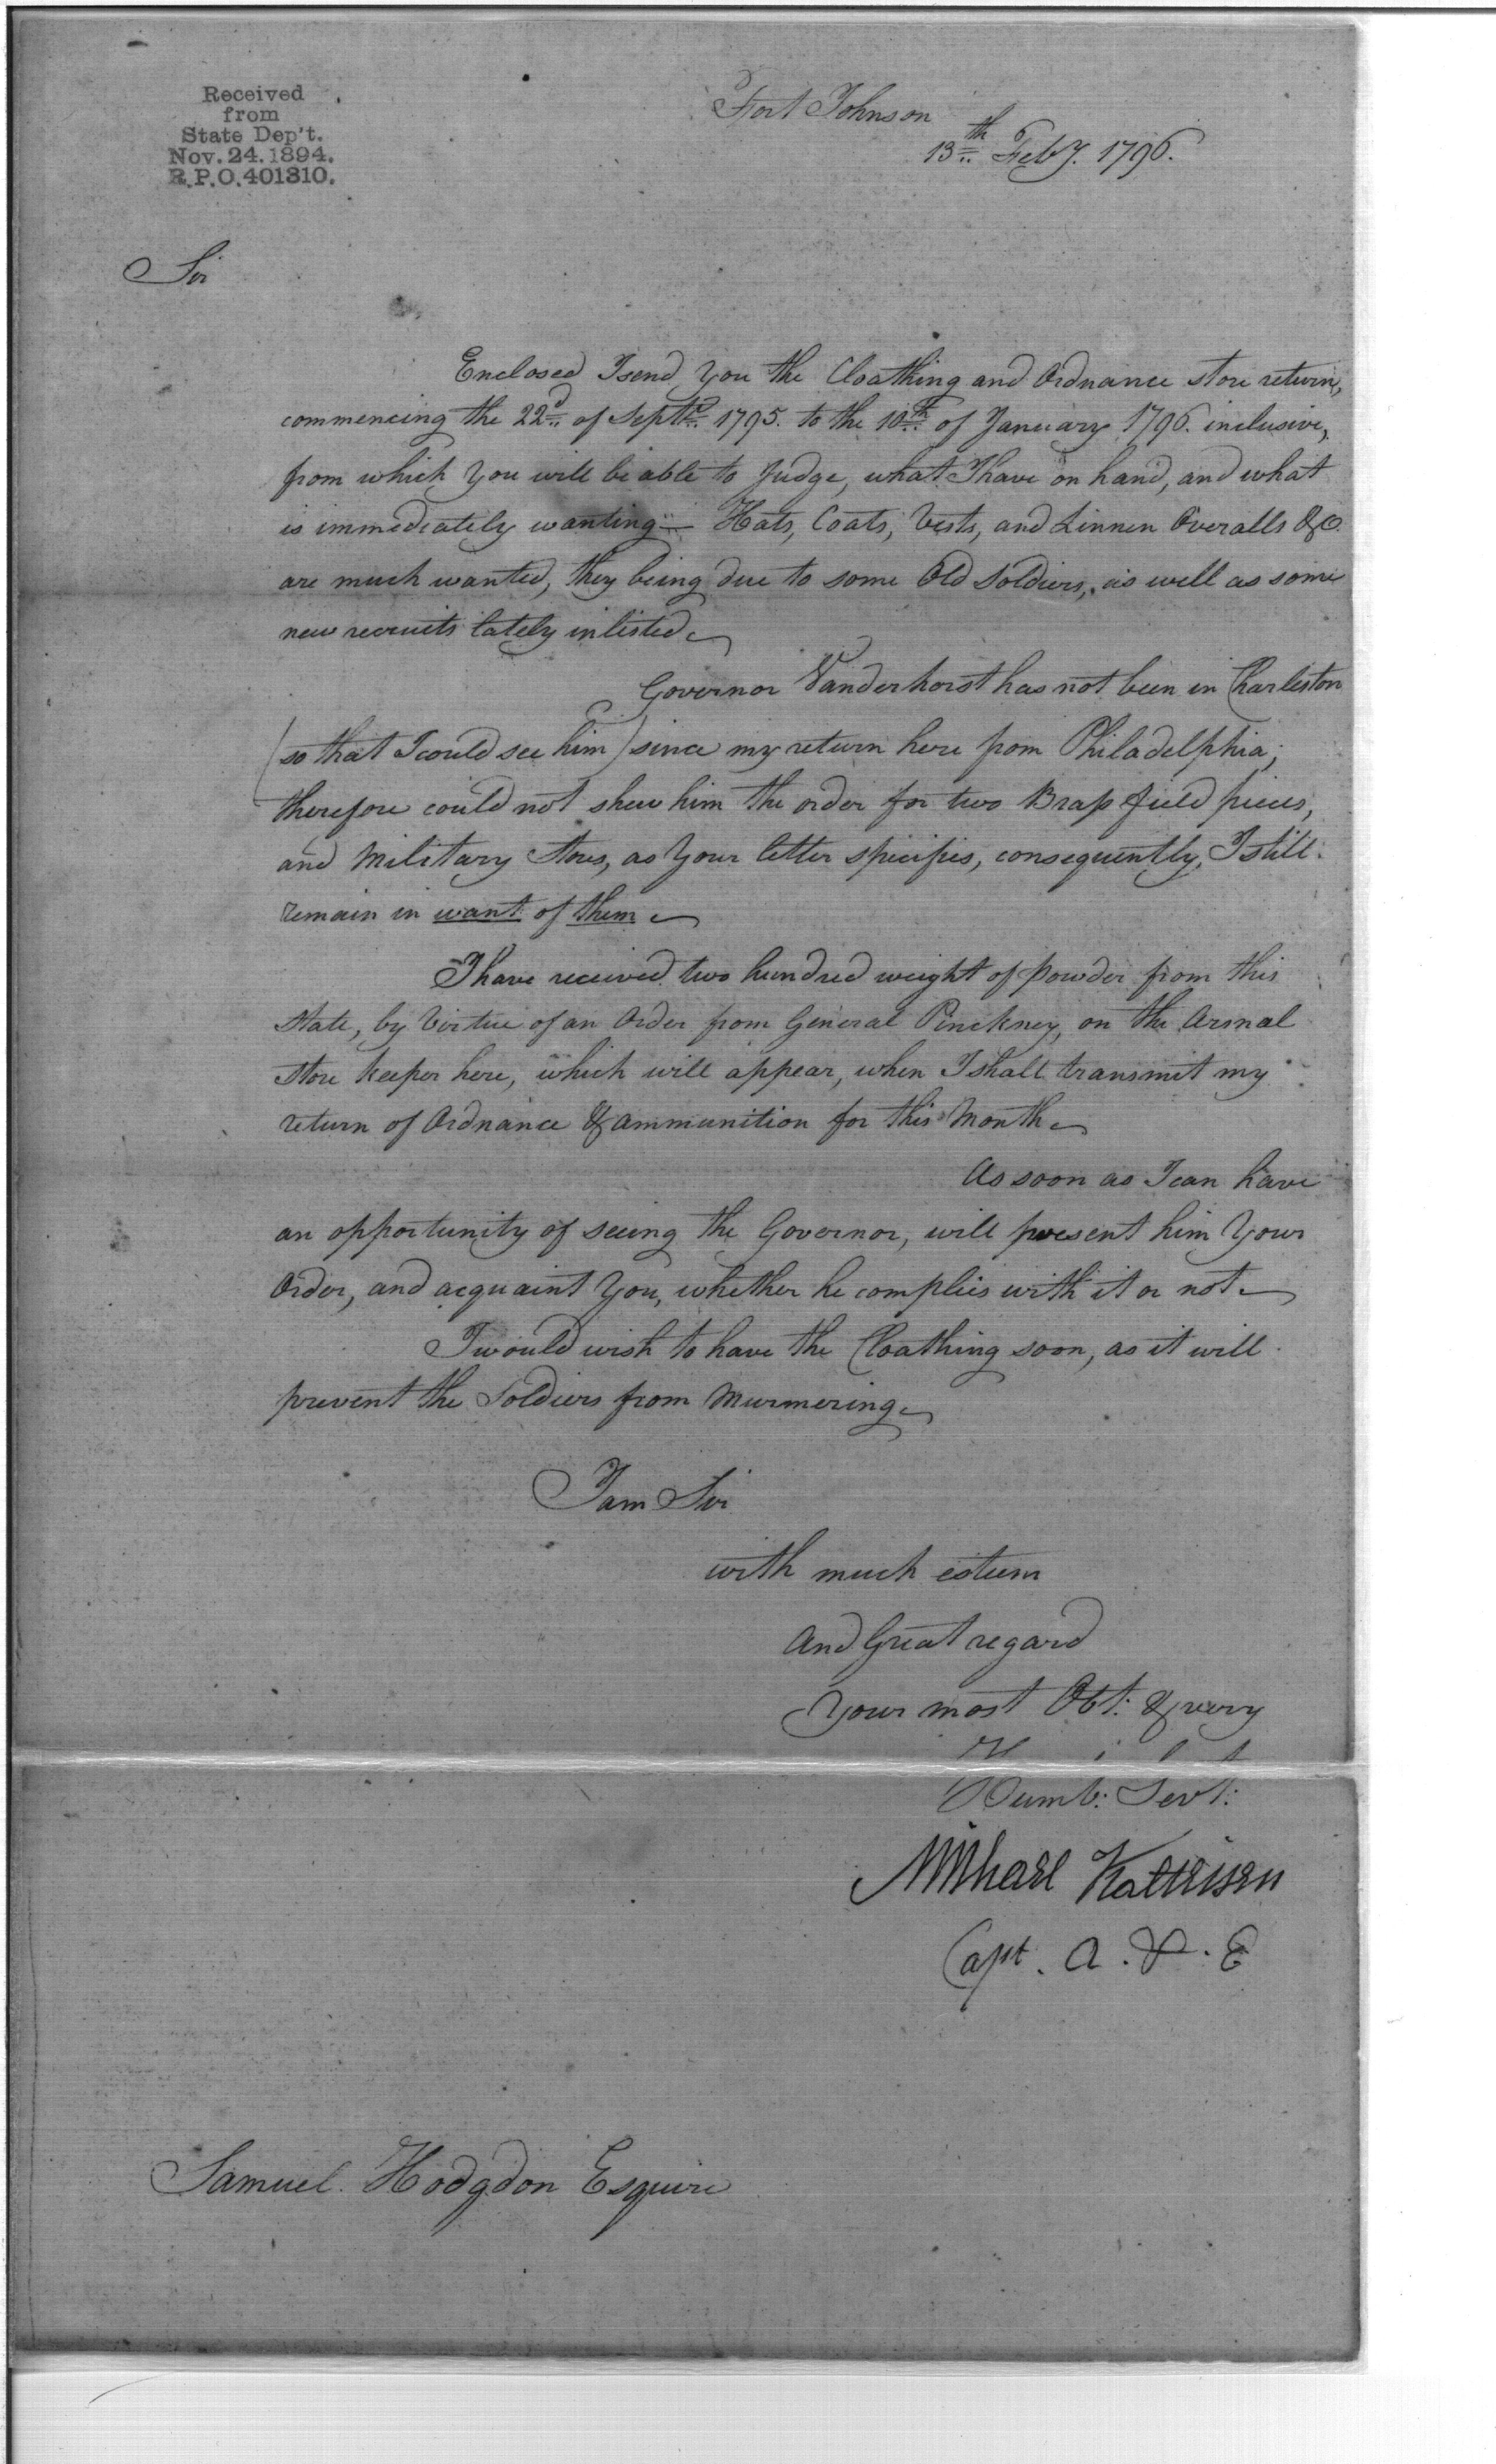 Received
from
State Dep't.
Nov. 24. 1894.
R.P.O. 401310.
Fort Johnson
13th Feby. 1796.
Sir
Enclosed I send You the Cloathing and Ordnance store return,
commencing the 22d of Septr. 1795. to the 10th of January 1796. inclusive,
from which You will be able to Judge, what I have on hand, and what
is immediately wanting — Hats, Coats, Vests, and Linnen Overalls &c.
are much wanted, they being due to some Old Soldiers, as well as some
new recruits lately inlisted.
Governor Vanderhorst has not been in Charleston
(so that I could see him) since my return here from Philadelphia;
therefore could not shew him the order for two Brass field pieces,
and Military Stores, as Your letter specifies, consequently, I still
remain in want of them.
I have received two hundred weight of powder from this
State, by Virtue of an Order from General Pinckney, on the Arsnal
Store Keeper here, which will appear, when I shall transmit my
return of Ordnance & ammunition for this Month.
As soon as I can have
an opportunity of seeing the Governor, will present him Your
Order, and acquaint You, whether he complies with it or not.
I would wish to have the Cloathing soon, as it will
prevent the Soldiers from Murmering.
I am Sir
with much esteem
And Great regard
Your most Obt: & very
Humb: Servt:
Michael Kalteisen
Capt. A. & E
Samuel Hodgdon Esquire